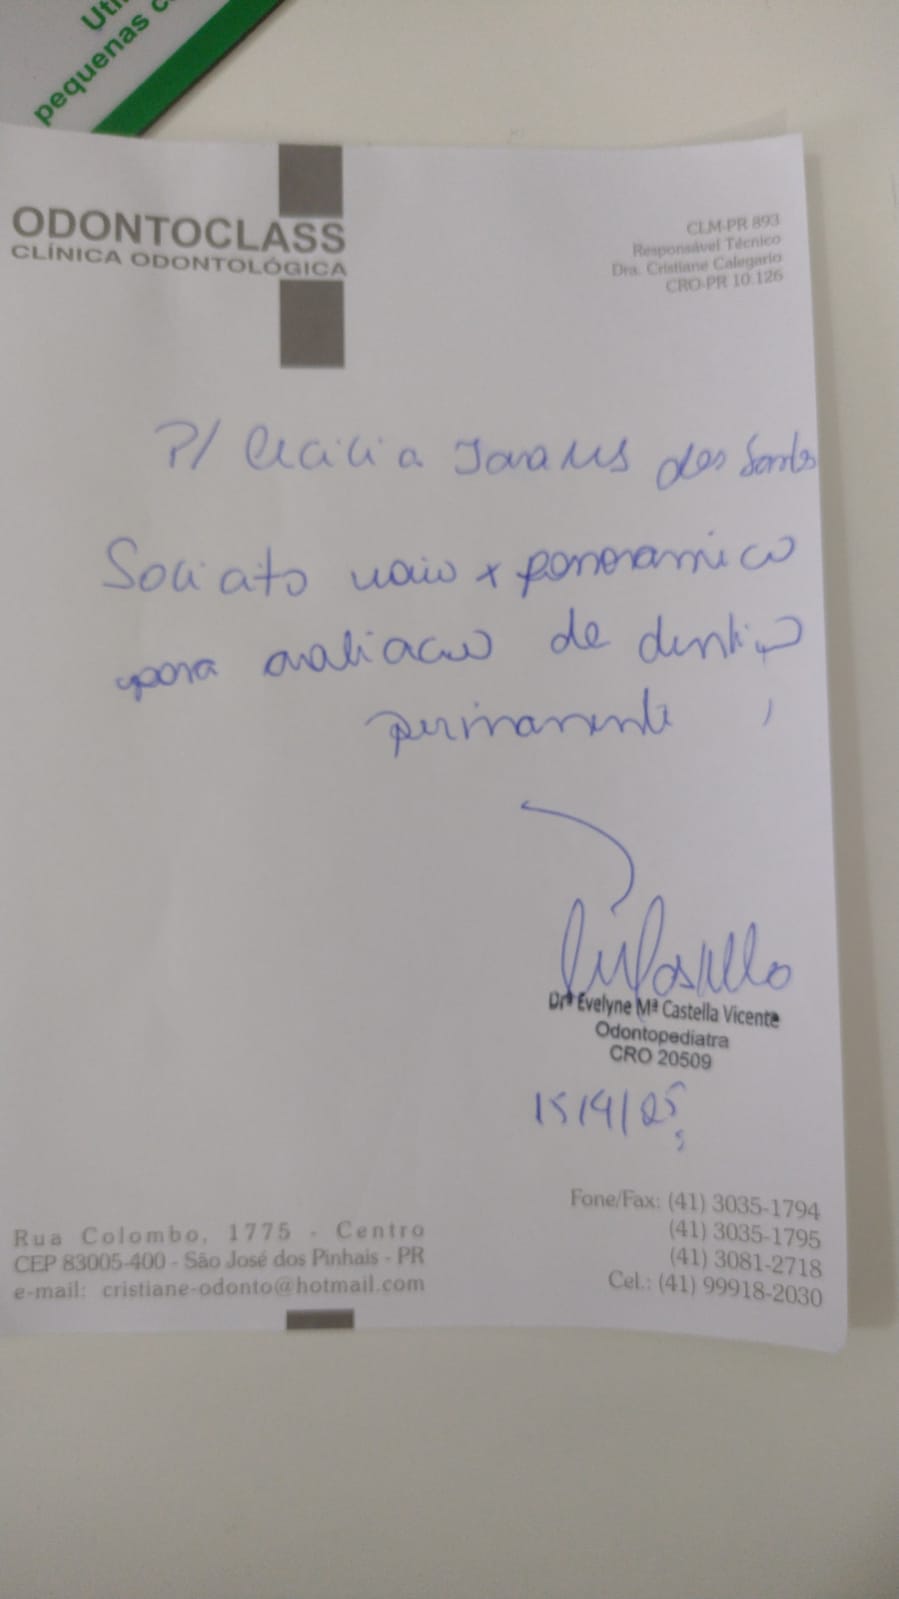 Uti
pequenas c
ODONTOCLASS
CLÍNICA ODONTOLÓGICA
CLM-PR 893
Responsável Técnico
Dra. Cristiane Calegario
CRO-PR 10.126
P/ Cecilia Tavares dos Santos
Solicito raio x panoramico
para avaliação de dentição
permanente
Drª Evelyne Mª Castella Vicente
Odontopediatra
CRO 20509
15/9/25
Rua Colombo, 1775 - Centro
CEP 83005-400 - São José dos Pinhais - PR
e-mail: cristiane-odonto@hotmail.com
Fone/Fax: (41) 3035-1794
(41) 3035-1795
(41) 3081-2718
Cel.: (41) 99918-2030